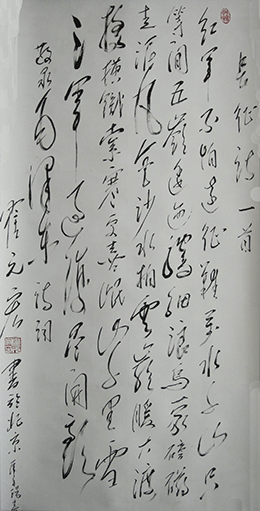 长征诗一首
红军不怕远征難万水千山只
等闲五嶺逶迤腾细浪乌蒙磅礴
走泥丸金沙水拍雲崖暖大渡
橋横鐵索寒更喜岷山千里雪
三军过後尽開颜
敬录毛泽东诗词
元
書於北京